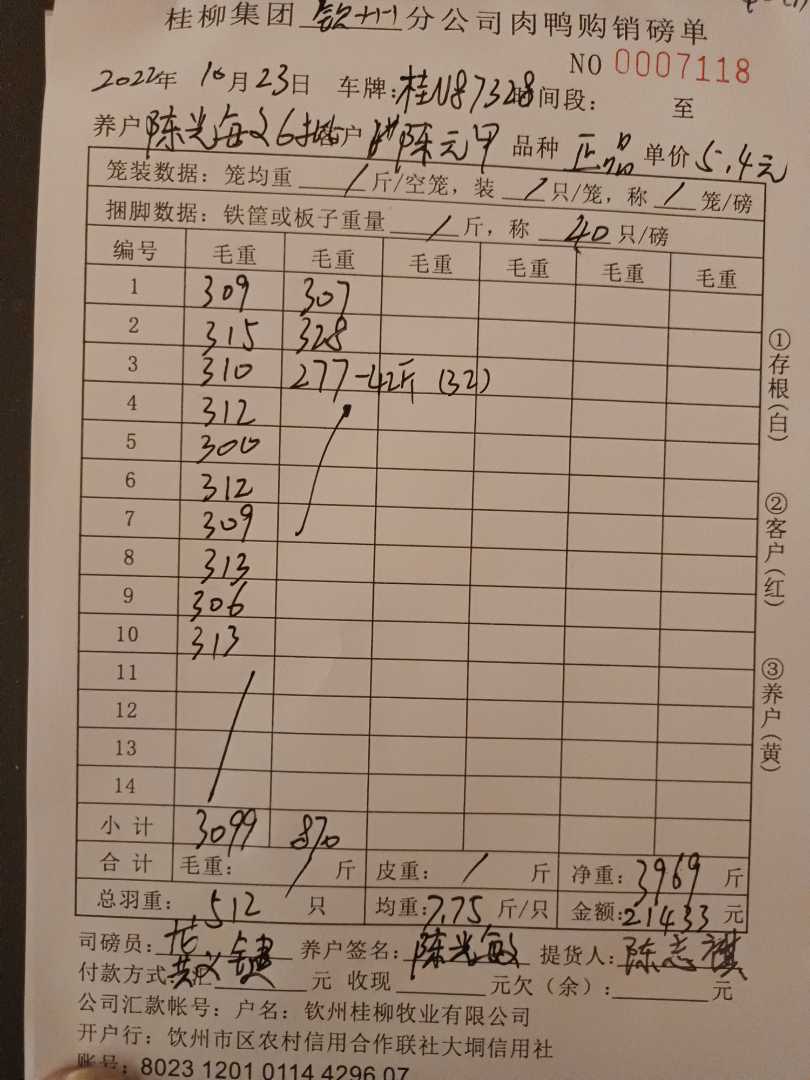 桂柳集团 钦州 分公司肉鸭购销磅单
NO 0007118
2022年 10月23日 车牌:桂N87328 时间段: 至
养户 陈光海 客户 陈元甲 品种 正品 单价 5.4元
笼装数据:笼均重 / 斤/空笼,装 / 只/笼,称 / 笼/磅
捆脚数据:铁筐或板子重量 / 斤,称 40 只/磅
编号 毛重 毛重 毛重 毛重 毛重 毛重
1 309 307
2 315 328
3 310 277-42斤 (32)
4 312
5 300
6 312
7 309
8 313
9 306
10 313
11
12
13
14
小计 3099 870
合计 毛重: / 斤 皮重: / 斤 净重: 3969 斤
总羽重: 512 只 均重: 7.75 斤/只 金额: 21433 元
司磅员: 养户签名: 陈光敏 提货人: 陈志祺
付款方式: 汇 元 收现 元欠(余): 元
公司汇款帐号:户名:钦州桂柳牧业有限公司
开户行:钦州市区农村信用合作联社大垌信用社
账号:8023 1201 0114 4296 07
①存根(白)
②客户(红)
③养户(黄)